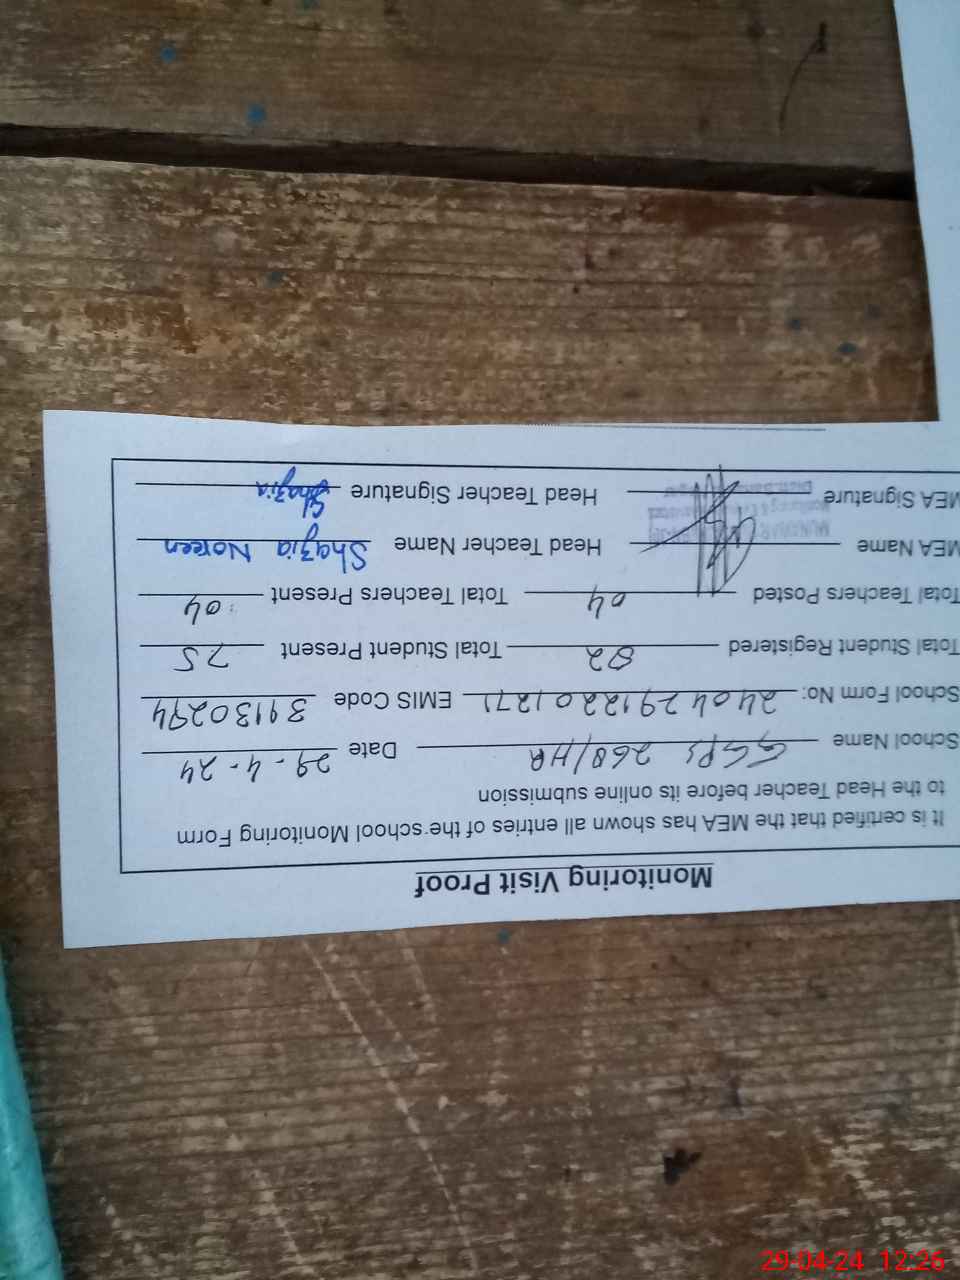 Monitoring Visit Proof
It is certified that the MEA has shown all entries of the school Monitoring Form
to the Head Teacher before its online submission
School Name GGPS 268/HR Date 29-4-24
School Form No: 24042912201271 EMIS Code 31130294
Total Student Registered 82 Total Student Present 75
Total Teachers Posted 04 Total Teachers Present 04
MEA Name Head Teacher Name Shazia Noreen
MEA Signature Head Teacher Signature Shazia
29-04-24 12:26